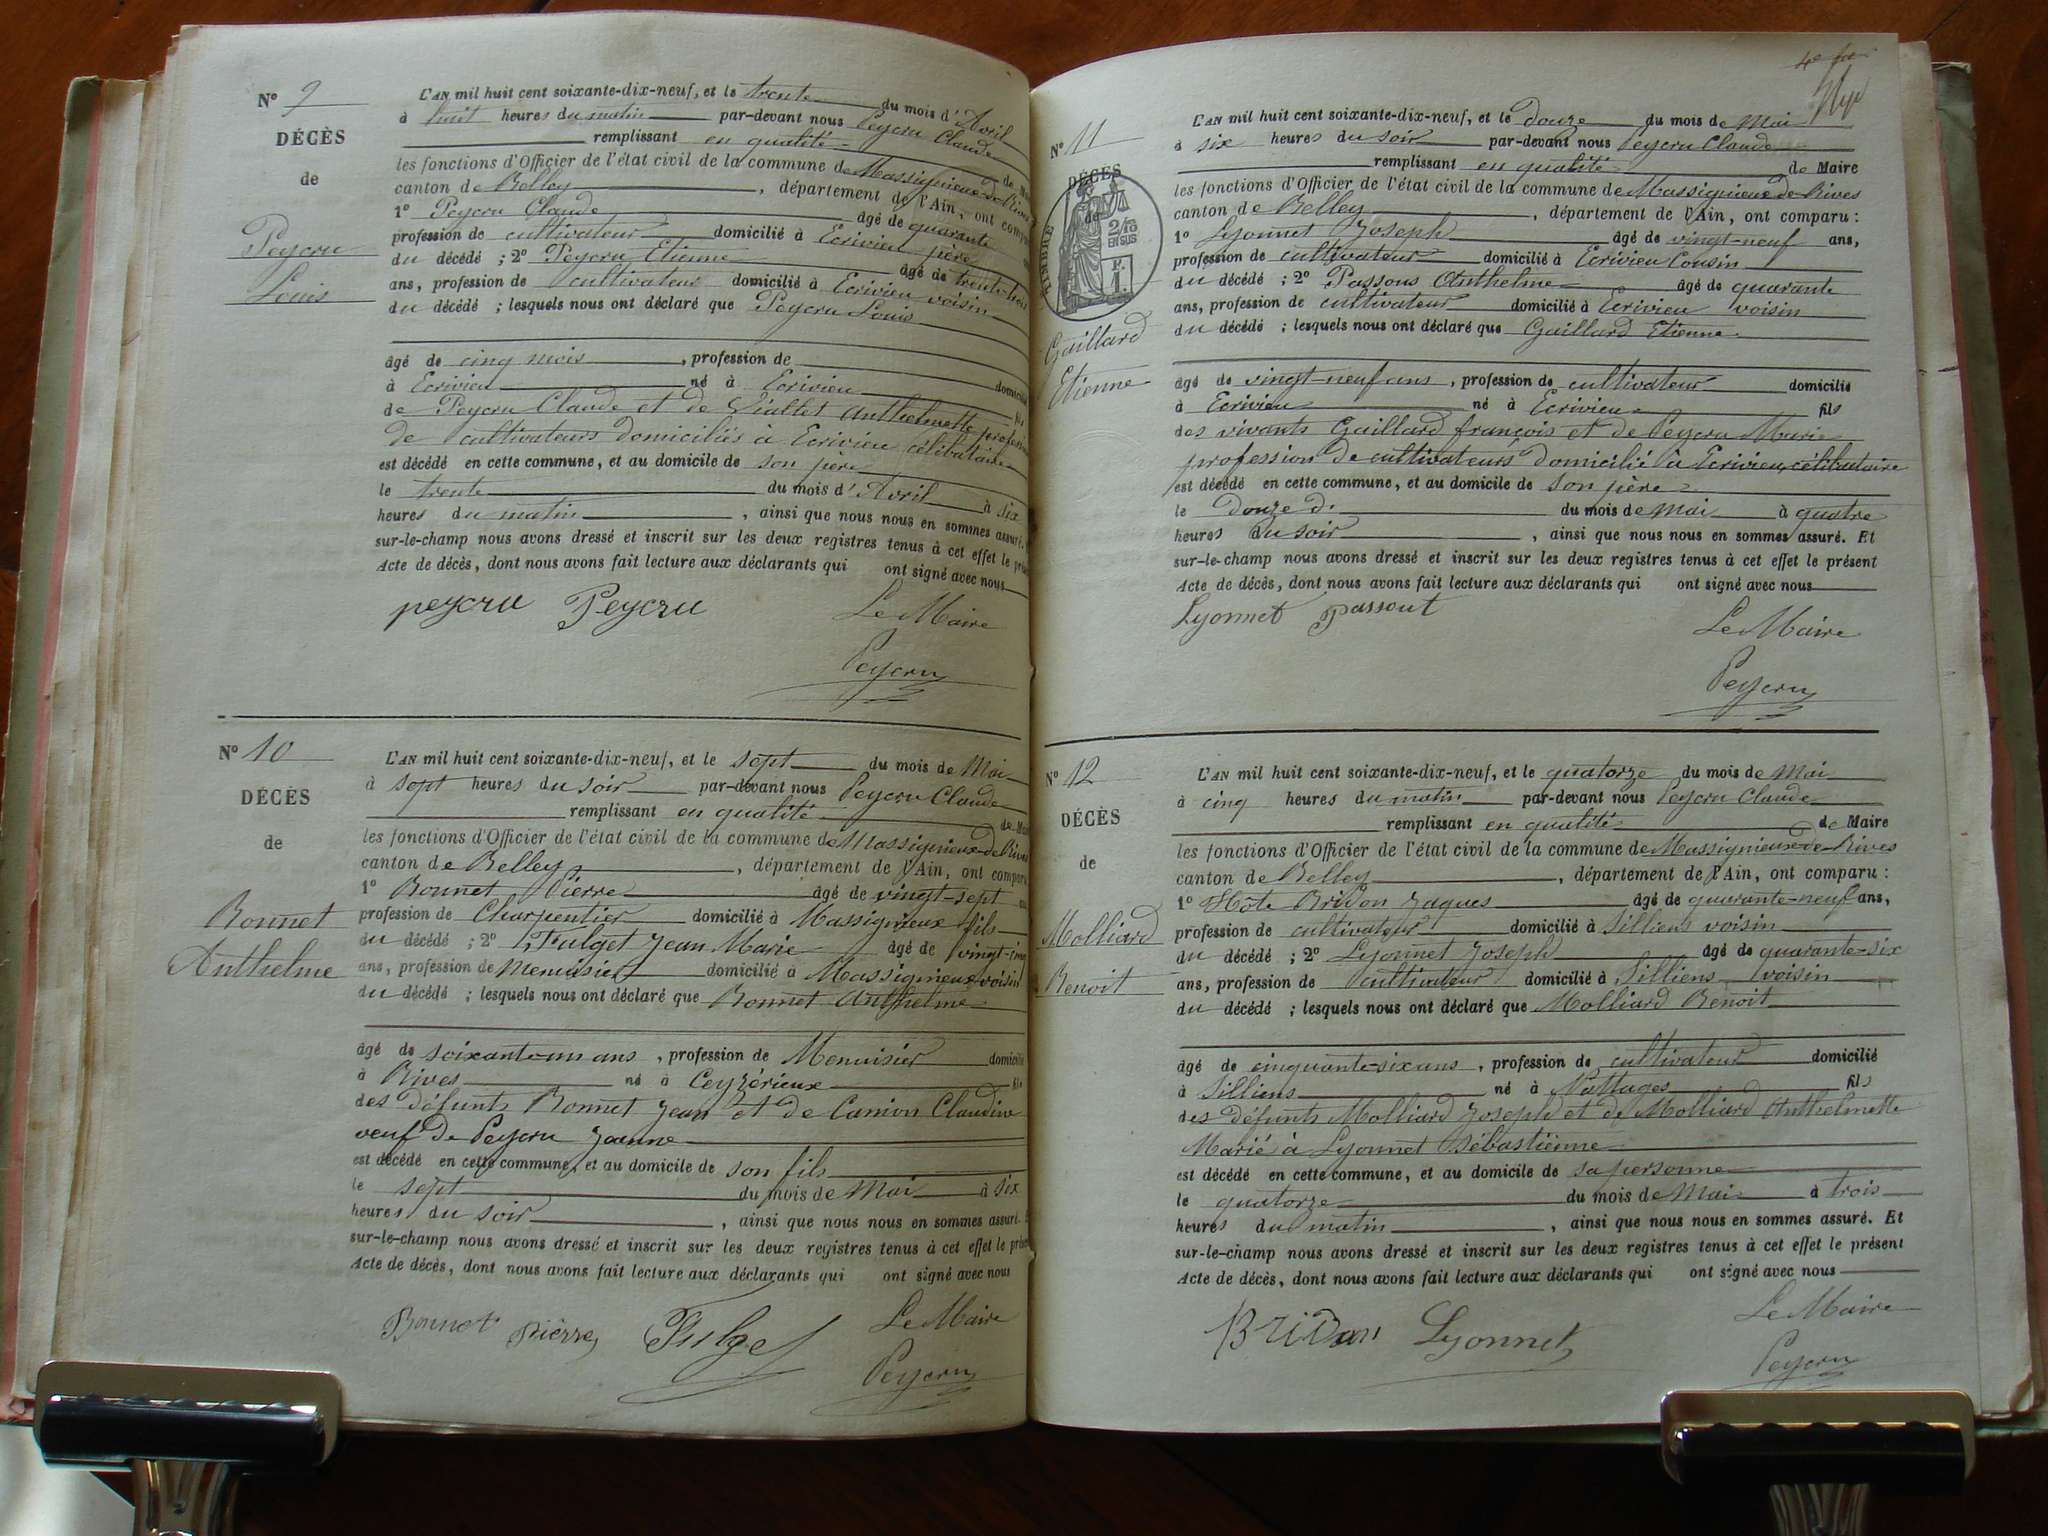 N° 9
DÉCÈS
de
Peycru
Louis
L'AN mil huit cent soixante-dix-neuf, et le trente du mois d'Avril
à huit heures du matin par-devant nous Peycru Claude
remplissant en qualité de
les fonctions d'Officier de l'état civil de la commune de Massignieu-de-Rives
canton de Belley, département de l'Ain, ont
1° Peycru Claude âgé de quarante
profession de cultivateur domicilié à Ecrivieu père
du décédé ; 2° Peycru Etienne âgé de
ans, profession de cultivateur domicilié à Ecrivieu voisin
du décédé ; lesquels nous ont déclaré que Peycru Louis
âgé de cinq mois, profession de domicilié
à Ecrivieu né à Ecrivieu fils
de Peycru Claude et de Anthelmette
de cultivateurs domiciliés à Ecrivieu célibataire
est décédé en cette commune, et au domicile de son père
le trente du mois d'Avril à six
heures du matin, ainsi que nous nous en sommes assuré.
sur-le-champ nous avons dressé et inscrit sur les deux registres tenus à cet effet le
Acte de décès, dont nous avons fait lecture aux déclarants qui ont signé avec nous
peycru Peycru Le Maire
Peycru
N° 10
DÉCÈS
de
Bonnet
Anthelme
L'AN mil huit cent soixante-dix-neuf, et le sept du mois de Mai
à sept heures du soir par-devant nous Peycru Claude
remplissant en qualité de
les fonctions d'Officier de l'état civil de la commune de Massignieux-de-Rives
canton de Belley, département de l'Ain, ont
1° Bonnet Pierre âgé de vingt-sept
profession de Charpentier domicilié à Massignieux fils
du décédé ; 2° Fulget Jean Marie âgé de
ans, profession de Menuisier domicilié à Massignieux voisin
du décédé ; lesquels nous ont déclaré que Bonnet Anthelme
âgé de soixante-un ans, profession de Menuisier domicilié
à Rives né à Ceyzérieux fils
des défunts Bonnet Jean et de Camion Claudine
veuf de Peycru Jeanne
est décédé en cette commune, et au domicile de son fils
le sept du mois de Mai à six
heures du soir, ainsi que nous nous en sommes assuré.
sur-le-champ nous avons dressé et inscrit sur les deux registres tenus à cet effet le
Acte de décès, dont nous avons fait lecture aux déclarants qui ont signé avec nous
Bonnet pierre Fulget Le Maire
Peycru
N° 11
DÉCÈS
de
TIMBRE
2/10
EN SUS
Gaillard
Etienne
L'AN mil huit cent soixante-dix-neuf, et le douze du mois de Mai
à six heures du soir par-devant nous Peycru Claude
remplissant en qualité de Maire
les fonctions d'Officier de l'état civil de la commune de Massignieux-de-Rives
canton de Belley, département de l'Ain, ont comparu :
1° Lyonnet Joseph âgé de vingt-neuf ans,
profession de cultivateur domicilié à Ecrivieu Cousin
du décédé ; 2° Passons Anthelme âgé de quarante
ans, profession de cultivateur domicilié à Ecrivieu voisin
du décédé ; lesquels nous ont déclaré que Gaillard Etienne
âgé de vingt-neuf ans, profession de cultivateur domicilié
à Ecrivieu né à Ecrivieu fils
des vivants Gaillard françois et de Peycru Marie
profession de cultivateurs domicilié à Ecrivieu, célibataire
est décédé en cette commune, et au domicile de son père
le Douze d. du mois de Mai à quatre
heures du soir, ainsi que nous nous en sommes assuré. Et
sur-le-champ nous avons dressé et inscrit sur les deux registres tenus à cet effet le présent
Acte de décès, dont nous avons fait lecture aux déclarants qui ont signé avec nous
Lyonnet passout Le Maire
Peycru
N° 12
DÉCÈS
de
Molliard
Benoit
L'AN mil huit cent soixante-dix-neuf, et le quatorze du mois de Mai
à cinq heures du matin par-devant nous Peycru Claude
remplissant en qualité de Maire
les fonctions d'Officier de l'état civil de la commune de Massignieux-de-Rives
canton de Belley, département de l'Ain, ont comparu :
1° Hôte Bridon Jaques âgé de quarante-neuf ans,
profession de cultivateur domicilié à Silliens voisin
du décédé ; 2° Lyonnet Joseph âgé de quarante-six
ans, profession de cultivateur domicilié à Silliens voisin
du décédé ; lesquels nous ont déclaré que Molliard Benoit
âgé de cinquante-six ans, profession de cultivateur domicilié
à Silliens né à Nattages fils
des défunts Molliard Joseph et de Molliard Anthelmette
Marié à Lyonnet Sébastienne
est décédé en cette commune, et au domicile de sa personne
le quatorze du mois de Mai à trois
heures du matin, ainsi que nous nous en sommes assuré. Et
sur-le-champ nous avons dressé et inscrit sur les deux registres tenus à cet effet le présent
Acte de décès, dont nous avons fait lecture aux déclarants qui ont signé avec nous
Bridon Lyonnet Le Maire
Peycru